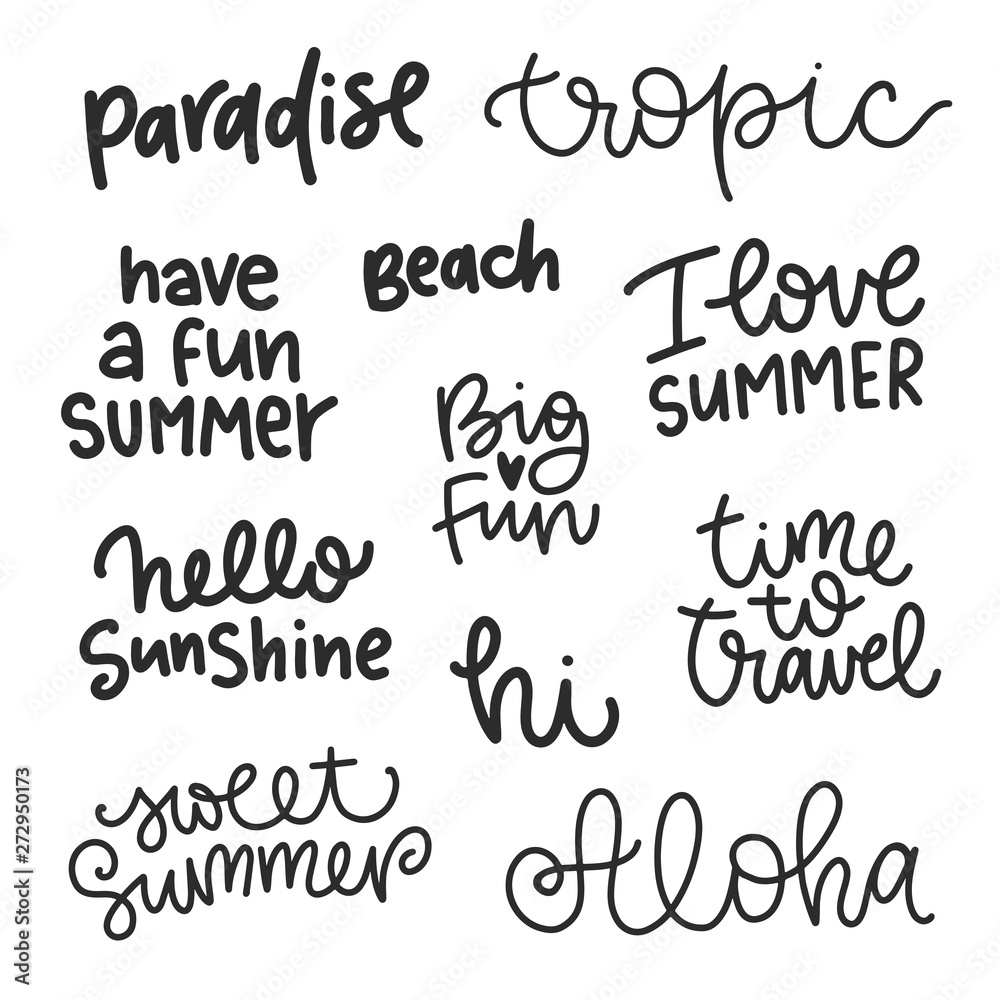 paradise
tropic
have
a fun
summer
Beach
I love
SUMMER
Big
Fun
hello
Sunshine
hi
time
to
travel
sweet
Summer
Aloha
Adobe Stock | #272950173